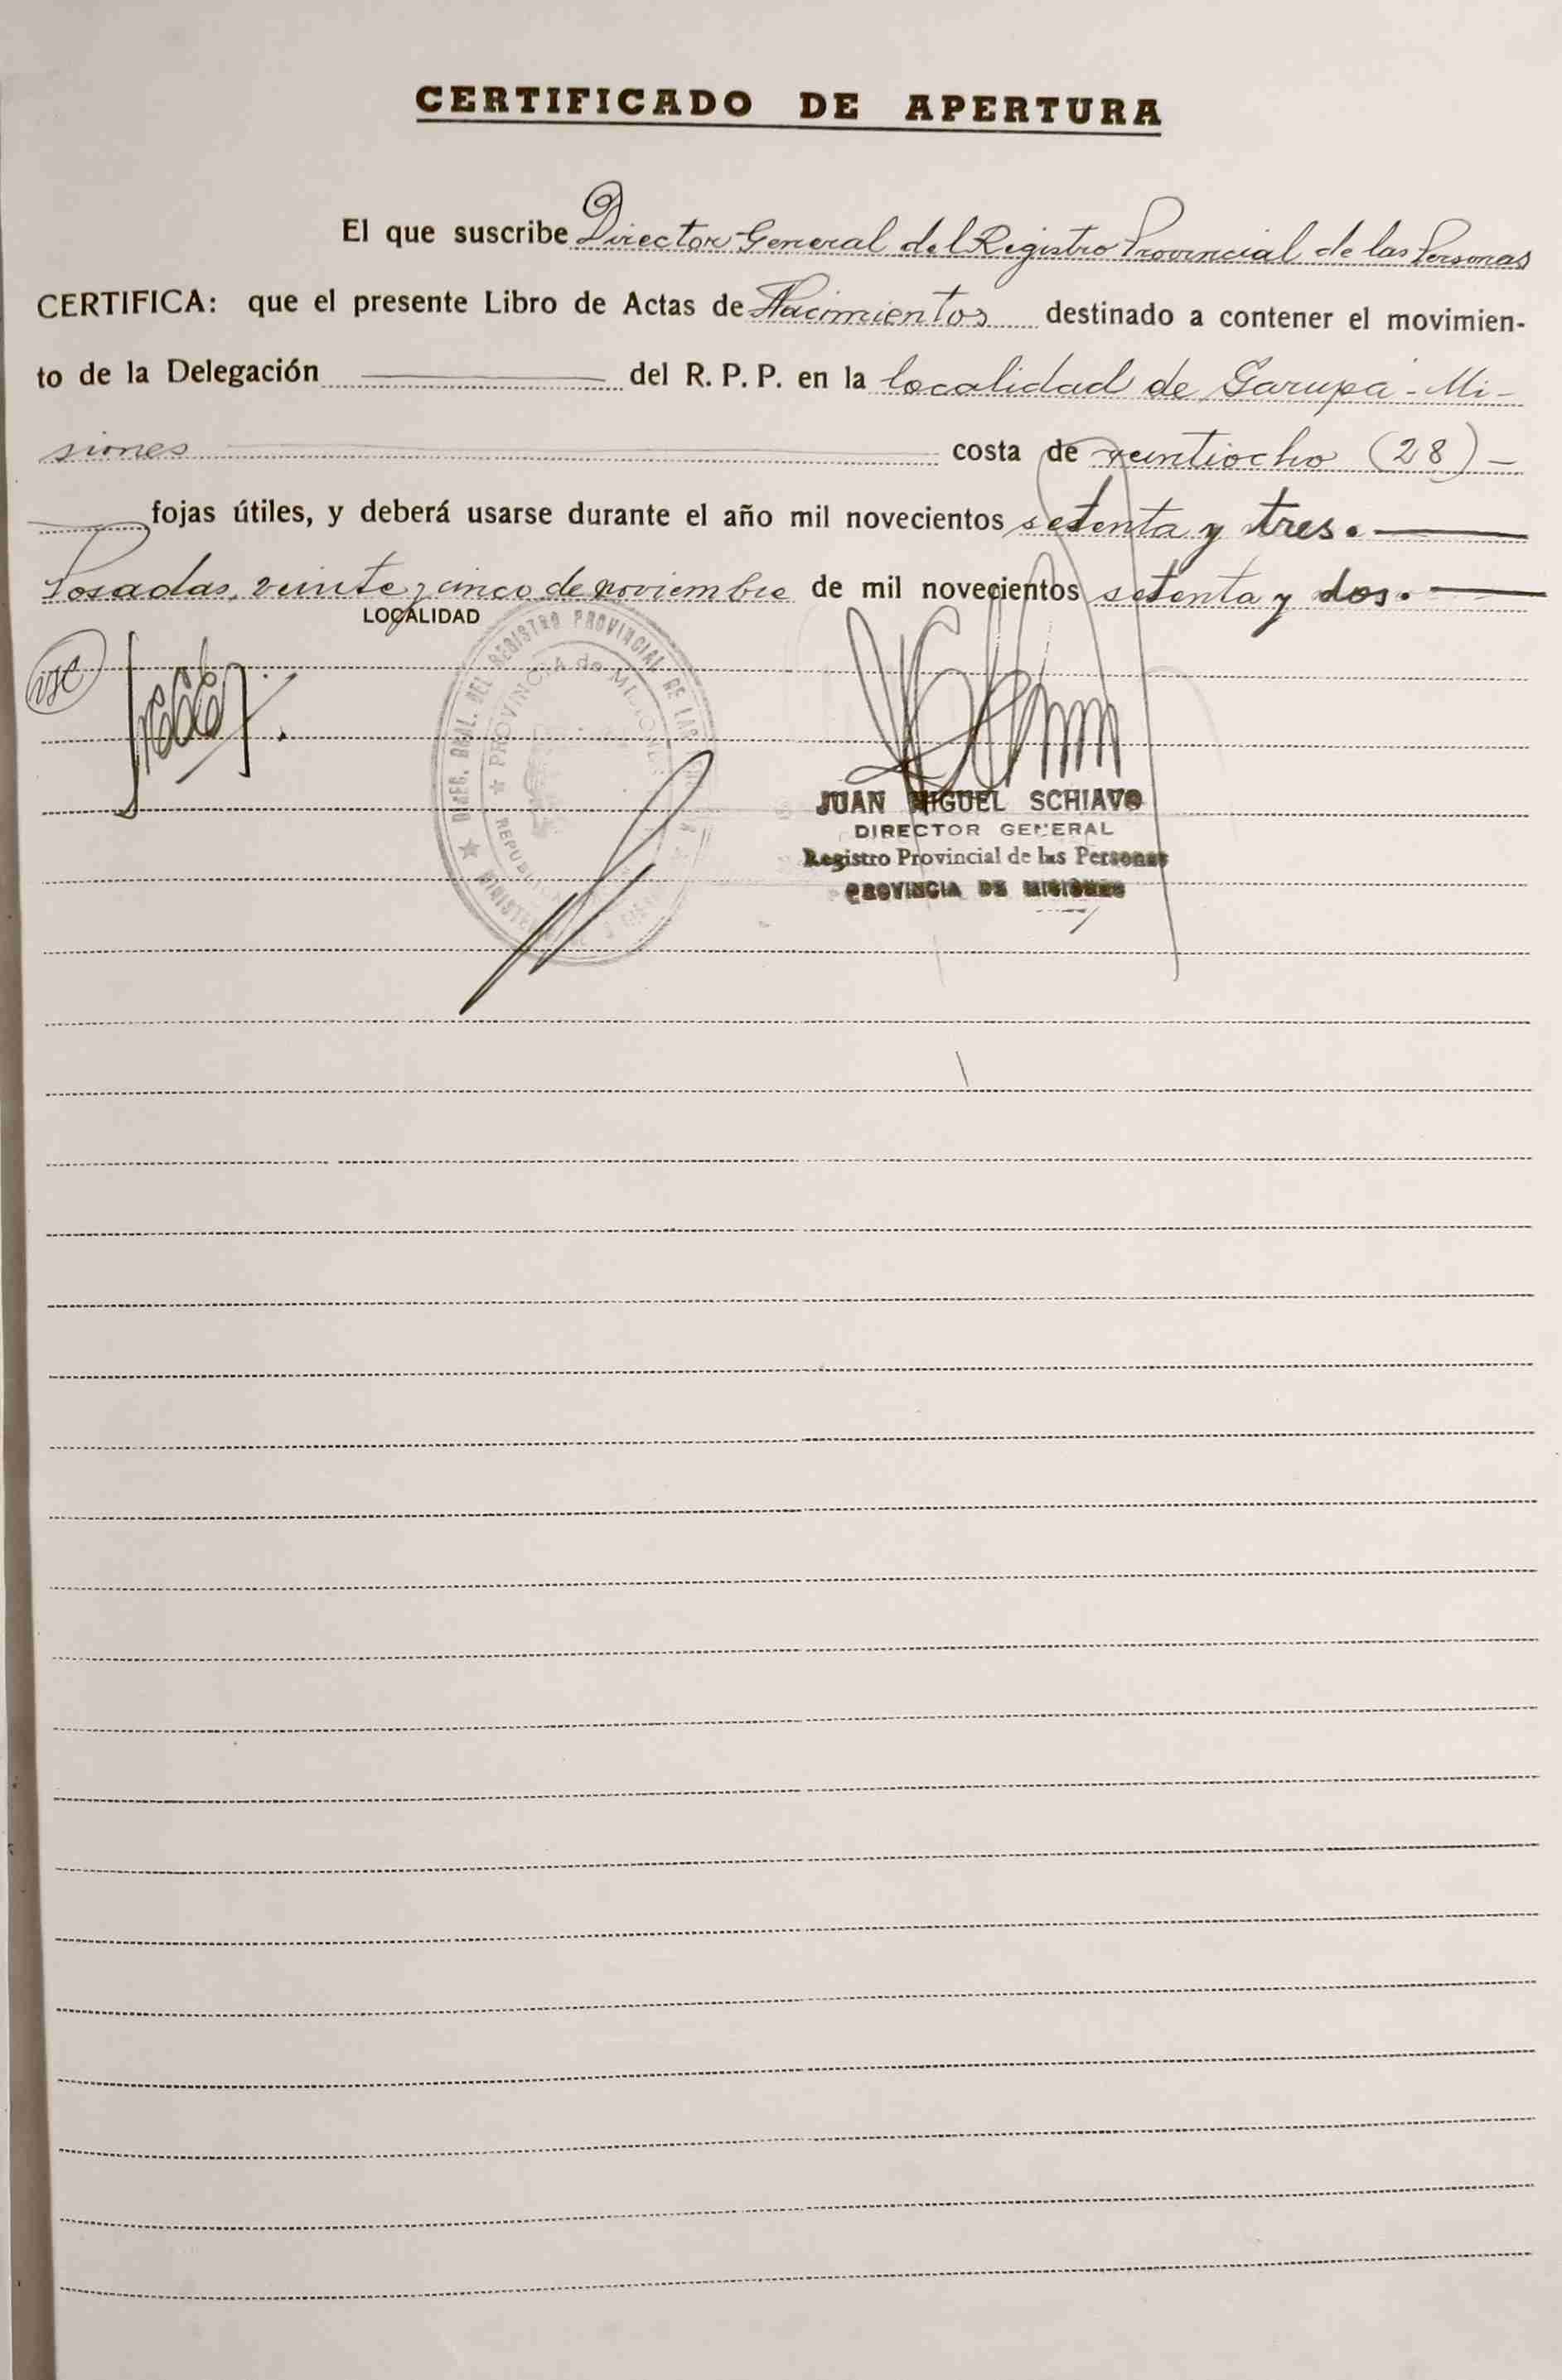 CERTIFICADO DE APERTURA
El que suscribe Director General del Registro Provincial de las Personas
CERTIFICA: que el presente Libro de Actas de Nacimientos destinado a contener el movimien-
to de la Delegación del R. P. P. en la localidad de Garupá - Mi-
siones costa de veintiocho (28) -
fojas útiles, y deberá usarse durante el año mil novecientos setenta y tres.
Posadas, veinte y cinco de noviembre de mil novecientos setenta y dos.
LOCALIDAD
DIREC. GRAL. DEL REGISTRO PROVINCIAL DE LAS
PROVINCIA de MISIONES
JUAN MIGUEL SCHIAVO
DIRECTOR GENERAL
Registro Provincial de las Personas
PROVINCIA DE MISIONES